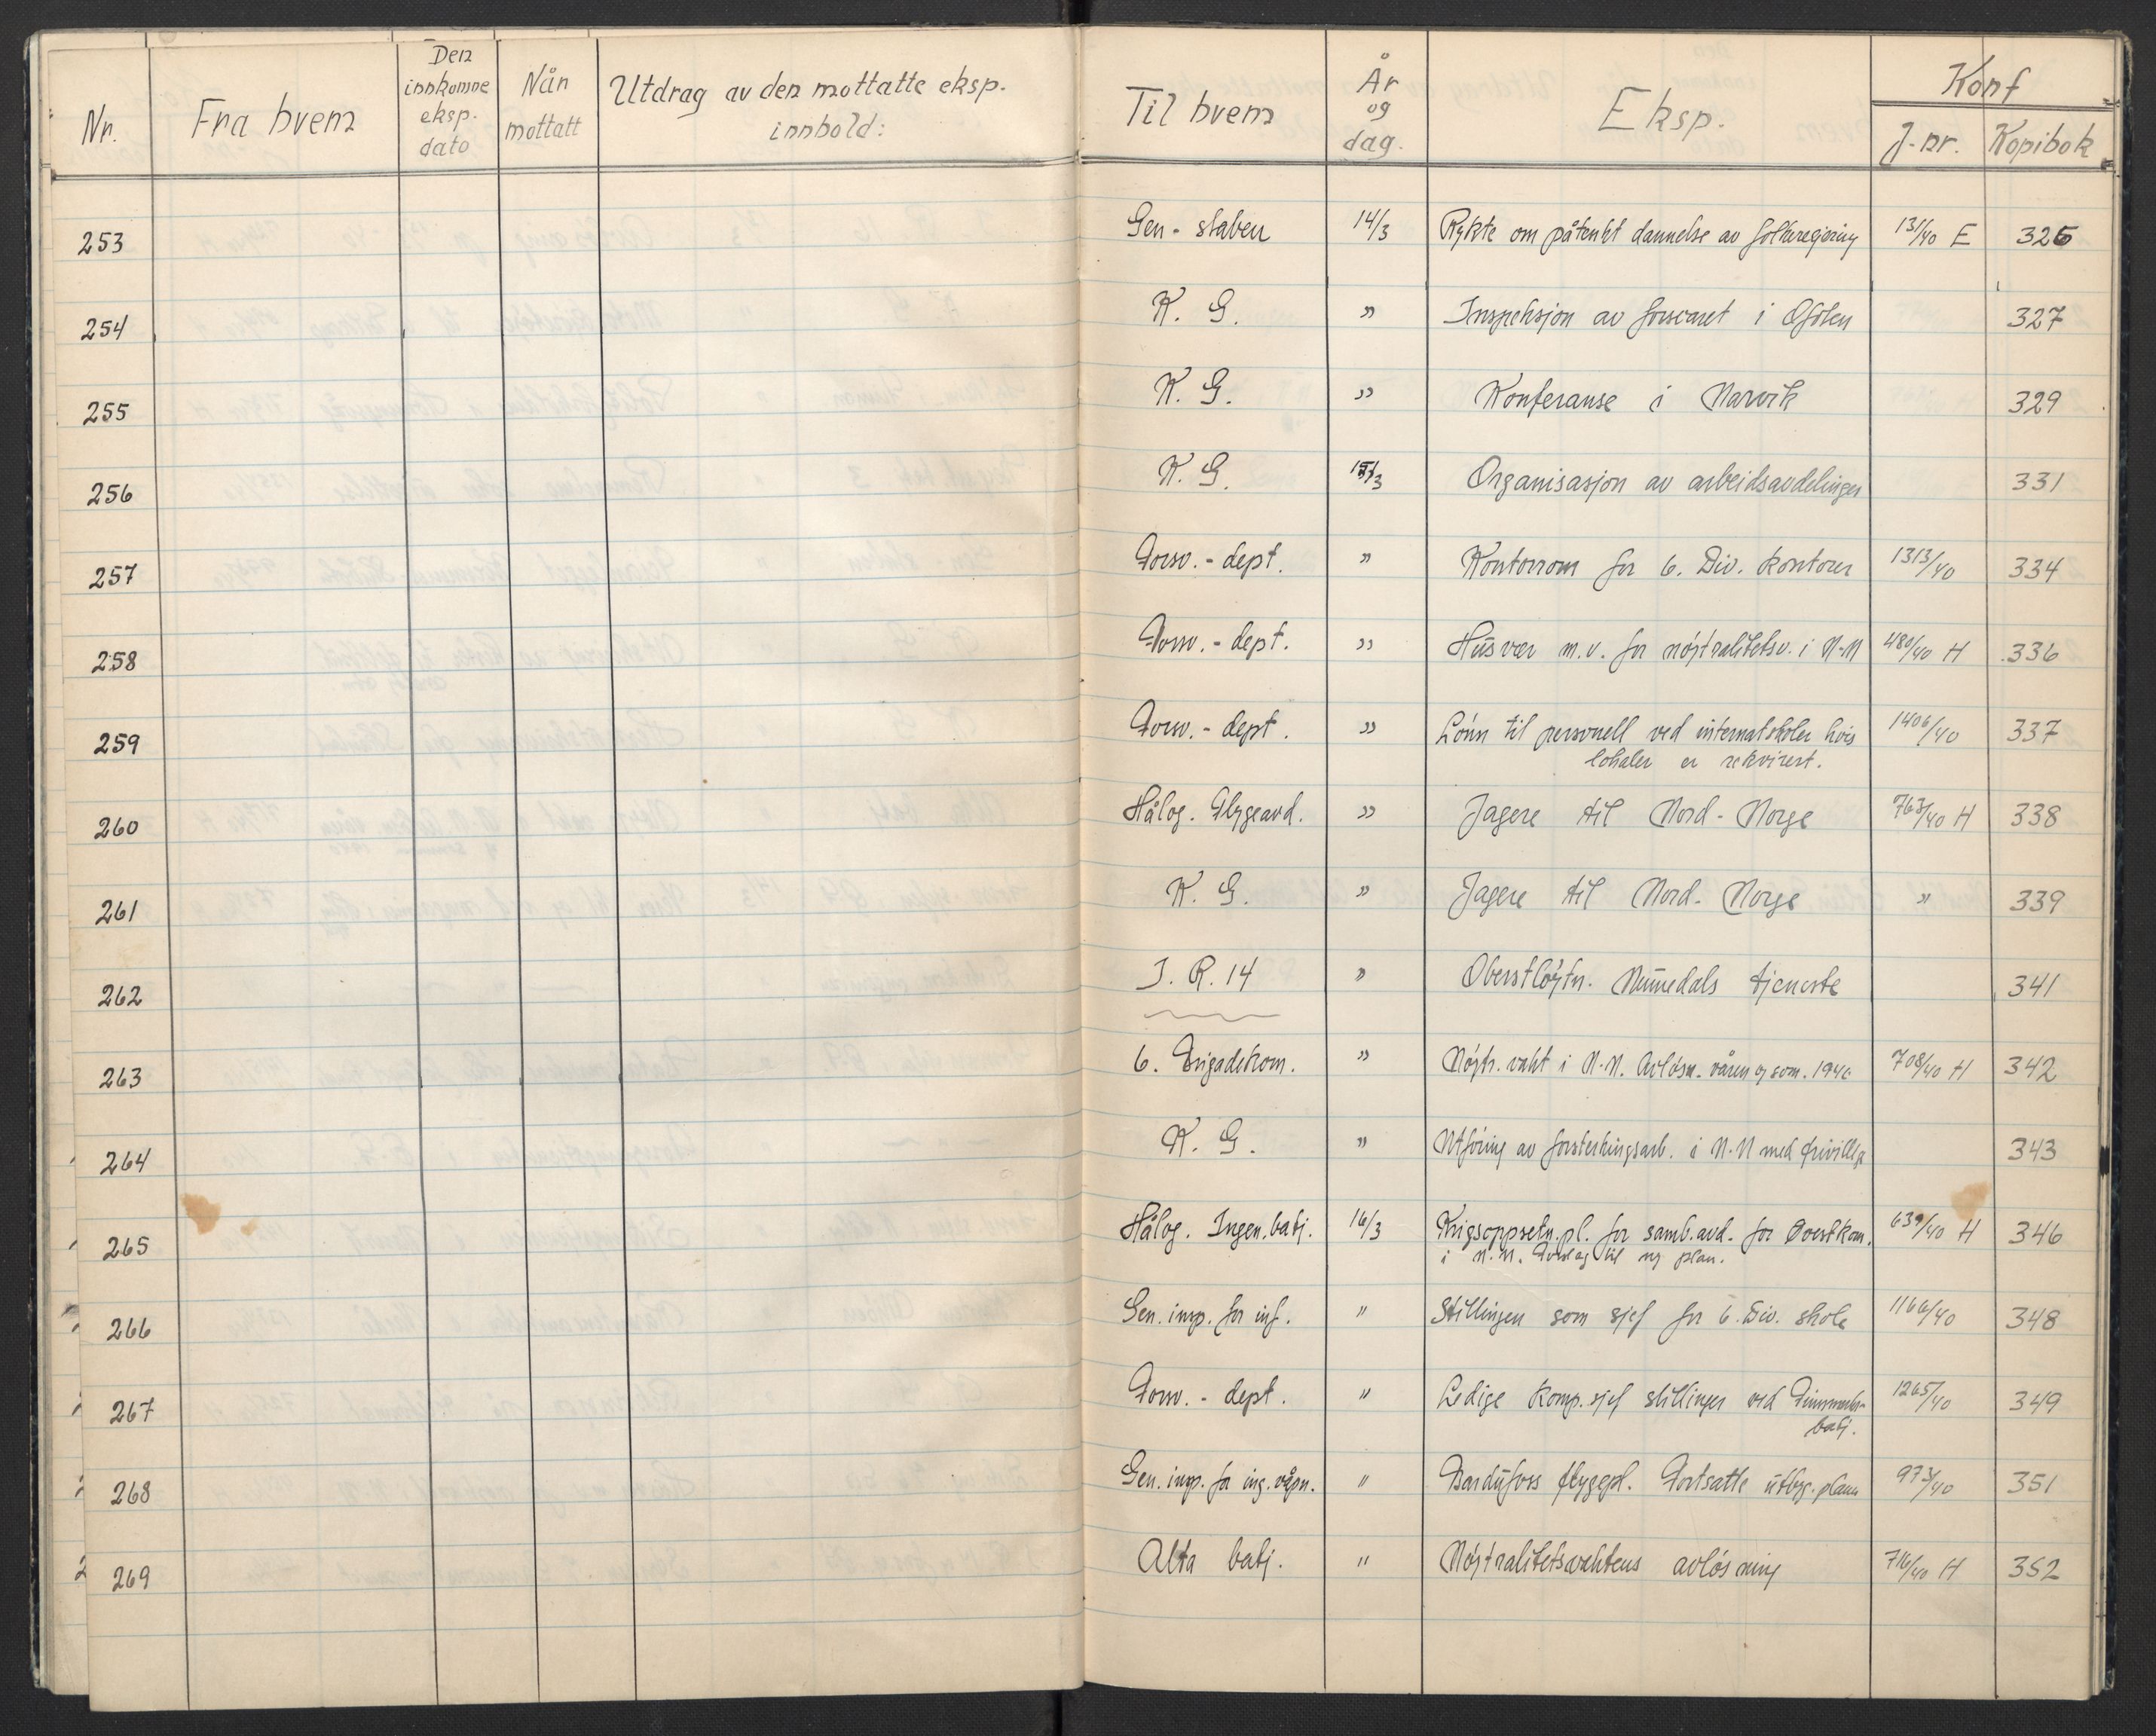 Nr. Fra hvem Den innkomne eksp. dato Når mottatt Utdrag av den mottatte eksp. innhold: Til hvem År og dag. Eksp. Konf J-nr. Kopibok
253 Gen-staben 14/3 Rykte om påtenkt dannelse av folkeregjering 131/40 E 326
254 K. G. " Inspeksjon av forsvaret i Ofoten 327
255 K. G. " Konferanse i Narvik 329
256 K. G. 15/3 Organisasjon av arbeidsavdelinger 331
257 Forsv.-dept. " Kontorrom for 6. Div. kontorer 1313/40 334
258 Forsv.-dept. " Husvær m.v. for nøytralitetsv. i N-N 480/40 H 336
259 Forsv.-dept. " Lønn til personell ved internatskoler hvis
lokaler er rekvirert. 1406/40 337
260 Hålog. Flygeavd. " Jagere til Nord-Norge 763/40 H 338
261 K. G. " Jagere til Nord-Norge " 339
262 I. R. 14 " Oberstløytn. Nummedals tjeneste 341
263 6. Brigadekom. " Nøytr. vakt i N-N. Avløsn. våren og som. 1940 708/40 H 342
264 K. G. " Utføring av forsterkningsarb. i N-N med frivillige 343
265 Hålog. Ingen.batj. 16/3 Krigsoppsetn.pl. for samb.avd. for Øverstkom.
i N.N. Forslag til ny plan. 639/40 H 346
266 Gen. insp. for inf. " Stillingen som sjef for 6. Div. skole 1166/40 348
267 Forsv.-dept. " Ledige komp.sjef stillinger ved Finnmarks-
batj. 1265/40 349
268 Gen. insp. for ing. våpn. " Bardufoss flygepl. Fortsatte utbyg. planer 973/40 351
269 Alta batj. " Nøytralitetsvaktens avløsning 716/40 H 352